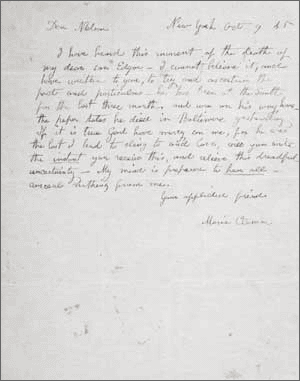 Dear Neilson New York Oct 9 45
I have heard this moment of the death of
my dear son Edgar — I cannot believe it, and
have written to you, to try and ascertain the
fact and particulars — he has been at the South
for the last three months, and was on his way home
the paper states he died in Baltimore yesterday
If it is true God have mercy on me, for he was
the last I had to cling to and love, will you write
the instant you receive this, and relieve this dreadful
uncertainty — My mind is prepared to hear all —
conceal nothing from me.
Your afflicted friend
Maria Clemm